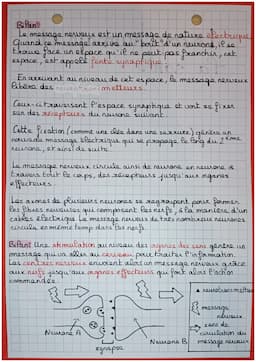 Bilan:
Le message nerveux est un message de nature électrique.
Quand ce message arrive au "bout" d'un neurone, il se
trouve face un espace qu'il ne peut pas franchir, cet
espace, est appelé fente synaptique.
En arrivant au niveau de cet espace, le message nerveux
libère des neurotransmetteurs.
Ceux-ci traversent l'espace synaptique et vont se fixer
sur des récepteurs du neurone suivant.
Cette fixation (comme une clée dans une serrure) génère un
nouveau message électrique qui se propage le long du 2ème
neurone, et ainsi de suite.
Le message nerveux circule ainsi de neurone en neurone à
travers tout le corps, des récepteurs jusqu'aux organes
effecteurs.
Les axones de plusieurs neurones se regroupent pour former
les fibres nerveuses qui composent les nerfs, à la manière d'un
câble électrique. Le message nerveux de très nombreux neurones
circule en même temps dans les nerfs.
Bilan: Une stimulation au niveau des organes des sens génère un
message qui va aller au cerveau, pour traiter l'information.
Les centres nerveux envoient alors un message nerveux grâce
aux nerfs jusqu'aux organes effecteurs qui font alors l'action
commandée.
neurotransmetteur
message
nerveux
sens de
circulation du
message nerveux
Neurone A
Neurone B
synapse